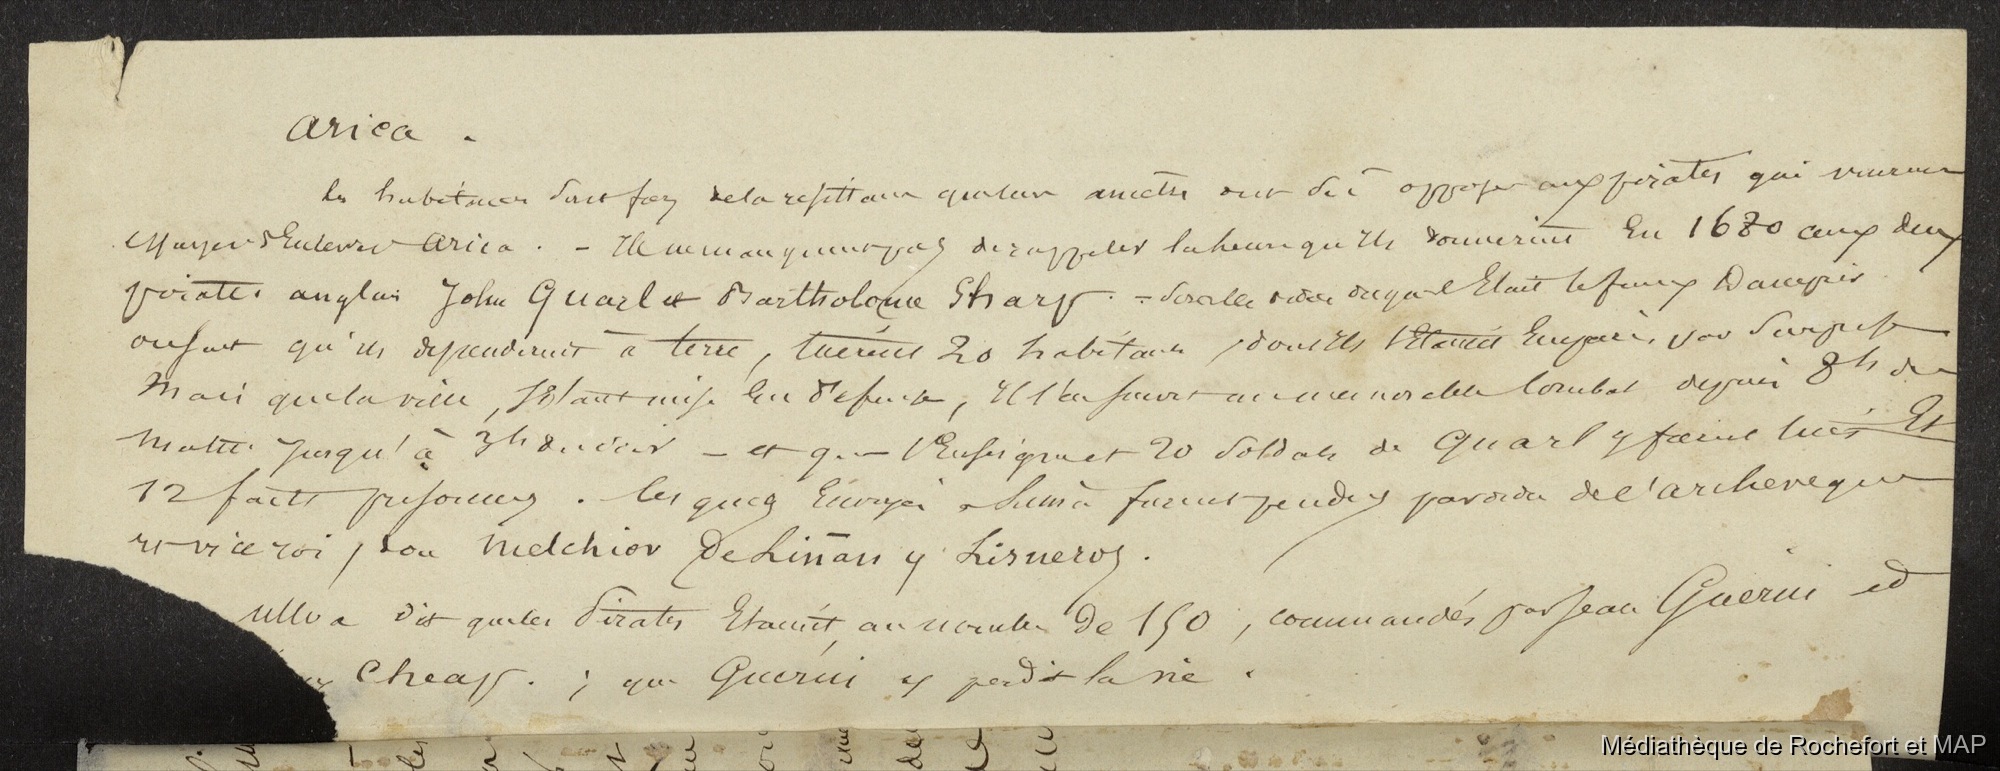 Arica .
les habitans sont fiers de la résistance que leurs ancêtres ont dû opposer aux pirates qui vinrent
essayer d'enlever Arica . – Ils ne manquent pas de rappeler la leçon qu'ils donnerent En 1680 aux deux
pirates anglais John Quarl et Bartholome Sharp . – était le fameux Dampier
qu'ils descendirent à terre, tuérent 20 habitans, dont ils s'étaient Emparés par surprise
Mais que la ville, s'étant mise En défense, il s'en suivit un memorable Combat depuis 8h du
Matin jusqu'à 3h du soir – et que l'Enseigne et 20 soldats de Quarl y furent tués Et
12 faits prisonniers . lesquels Envoyés à Lima furent pendus par ordre de l'archeveque
et viceroi, don Melchior De Liñan y Lisneros .
Ulloa dit que les Pirates Etaient au nombre de 150, commandés par Jean Guerin et
Cheap . ; que Guerin y perdit la vie .
Médiathèque de Rochefort et MAP